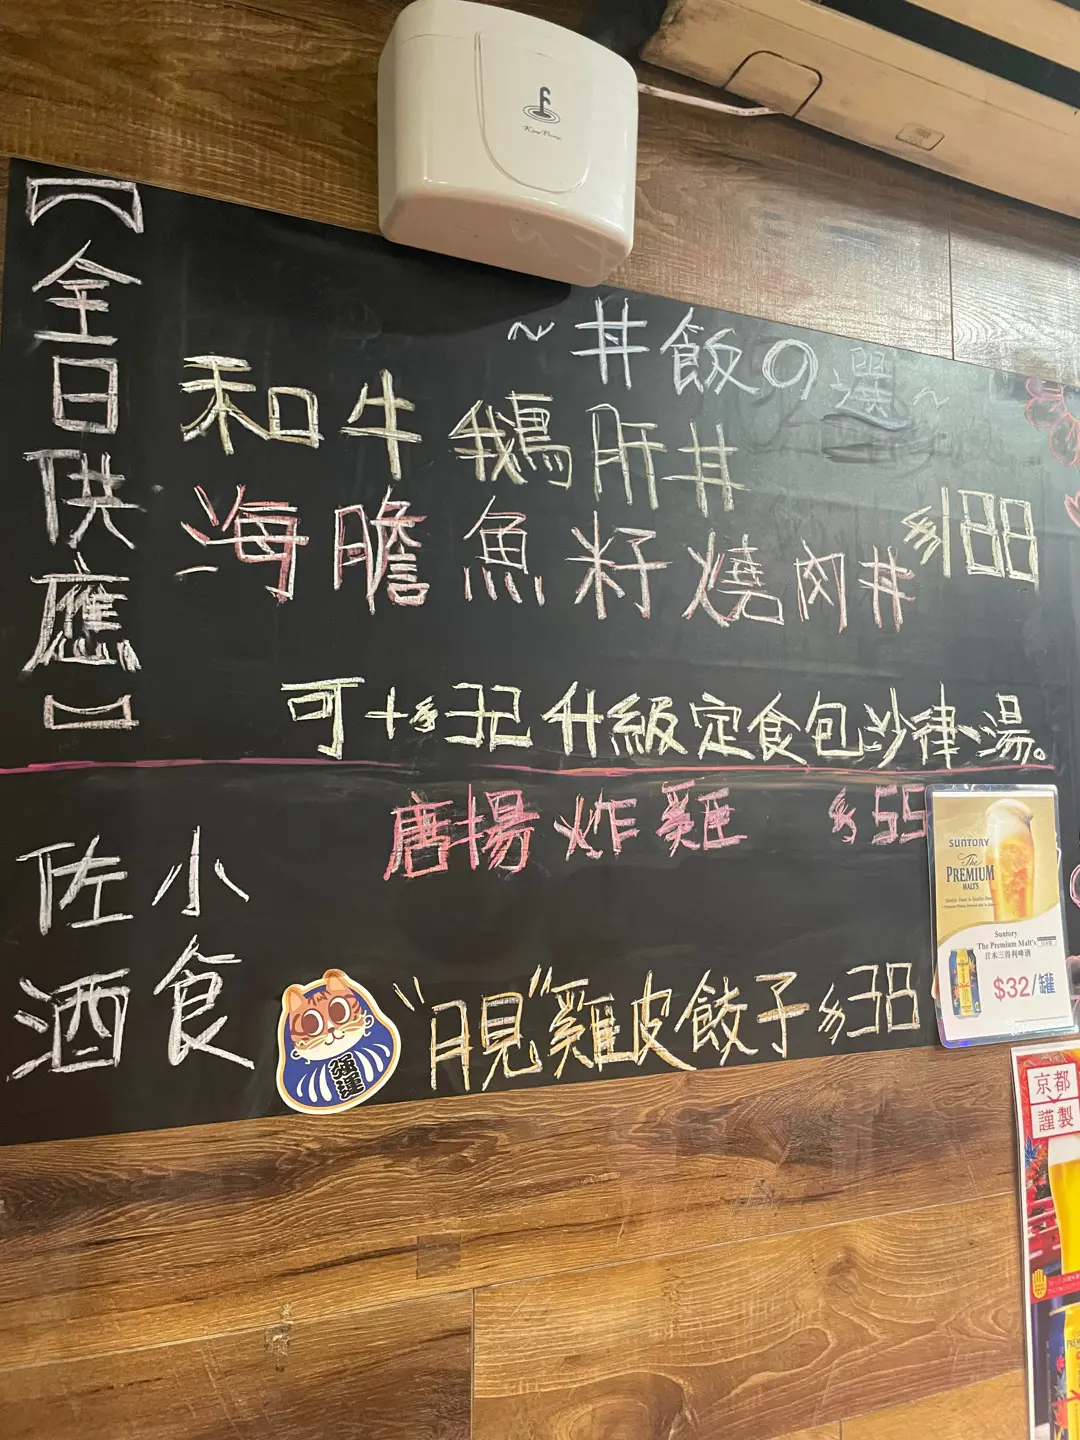 【全日供應】
~丼飯の選~
和牛鵝肝丼
海膽魚籽燒肉丼 $188
可+$32升級定食包沙律、湯。
佐酒
小食
唐揚炸雞 $55
"月見"雞皮餃子 $38
強運
SUNTORY
The
PREMIUM
MALT'S
Suntory
The Premium Malt's
日本三得利啤酒
$32/罐
京都
謹製